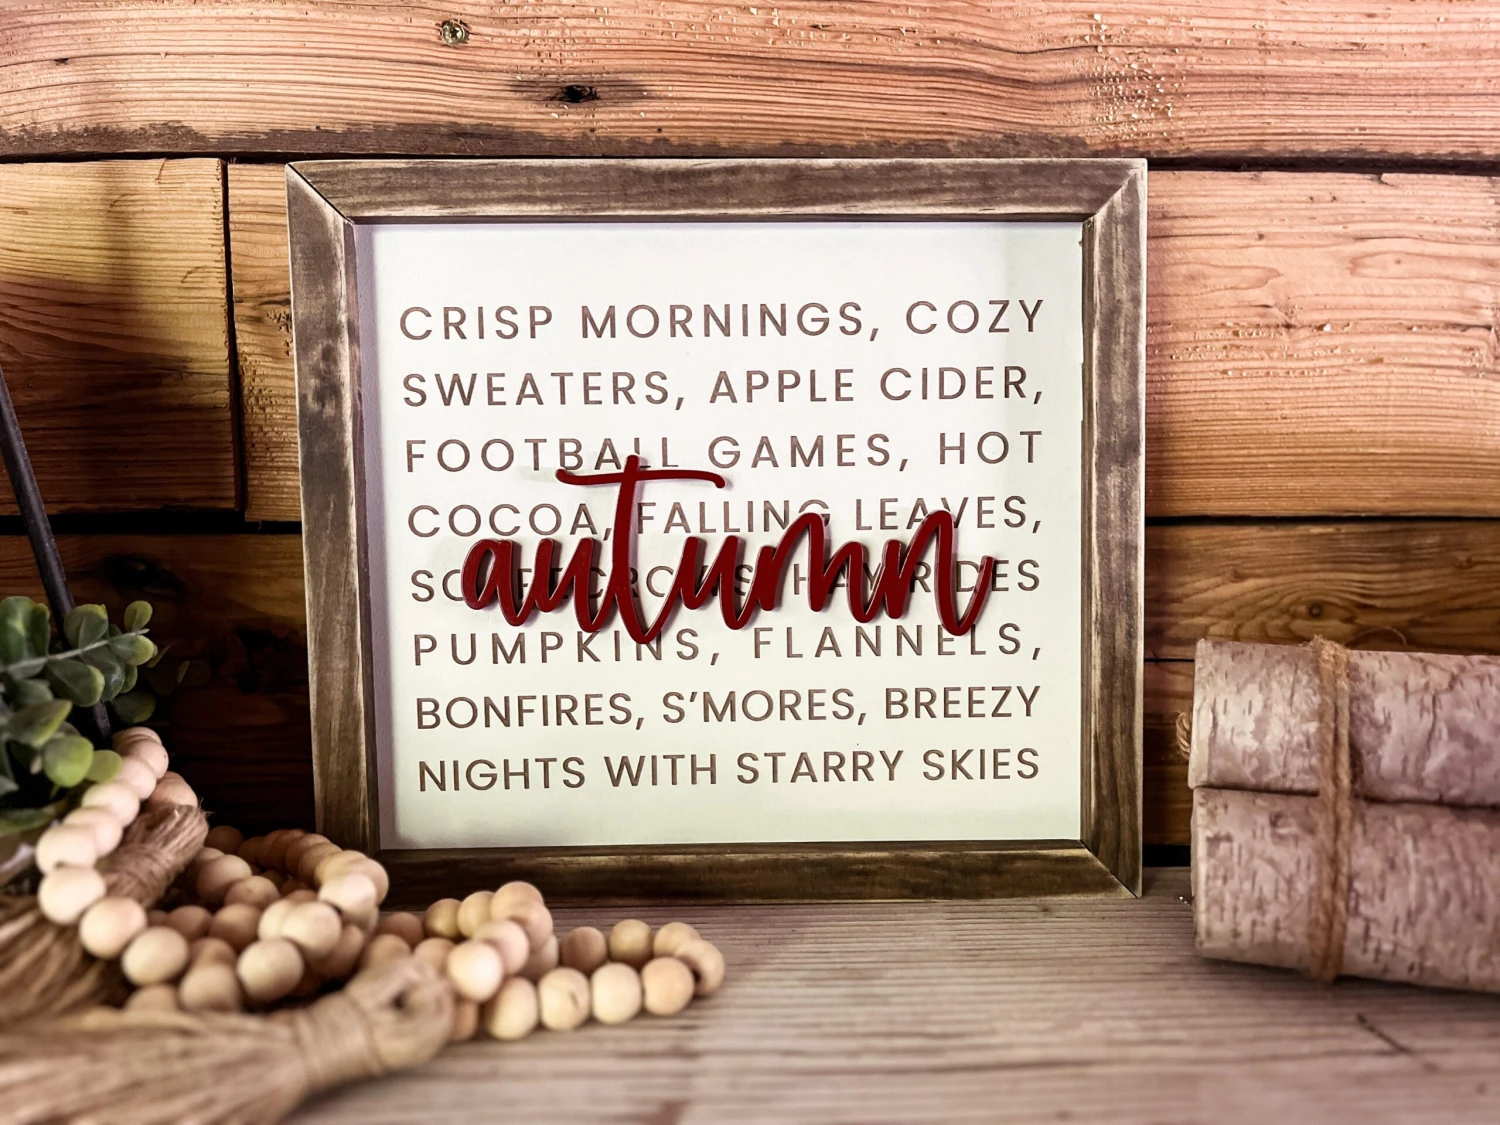 CRISP MORNINGS, COZY
SWEATERS, APPLE CIDER,
FOOTBALL GAMES, HOT
COCOA, FALLING LEAVES,
autumn
SCARECROWS, HAYRIDES
PUMPKINS, FLANNELS,
BONFIRES, S’MORES, BREEZY
NIGHTS WITH STARRY SKIES